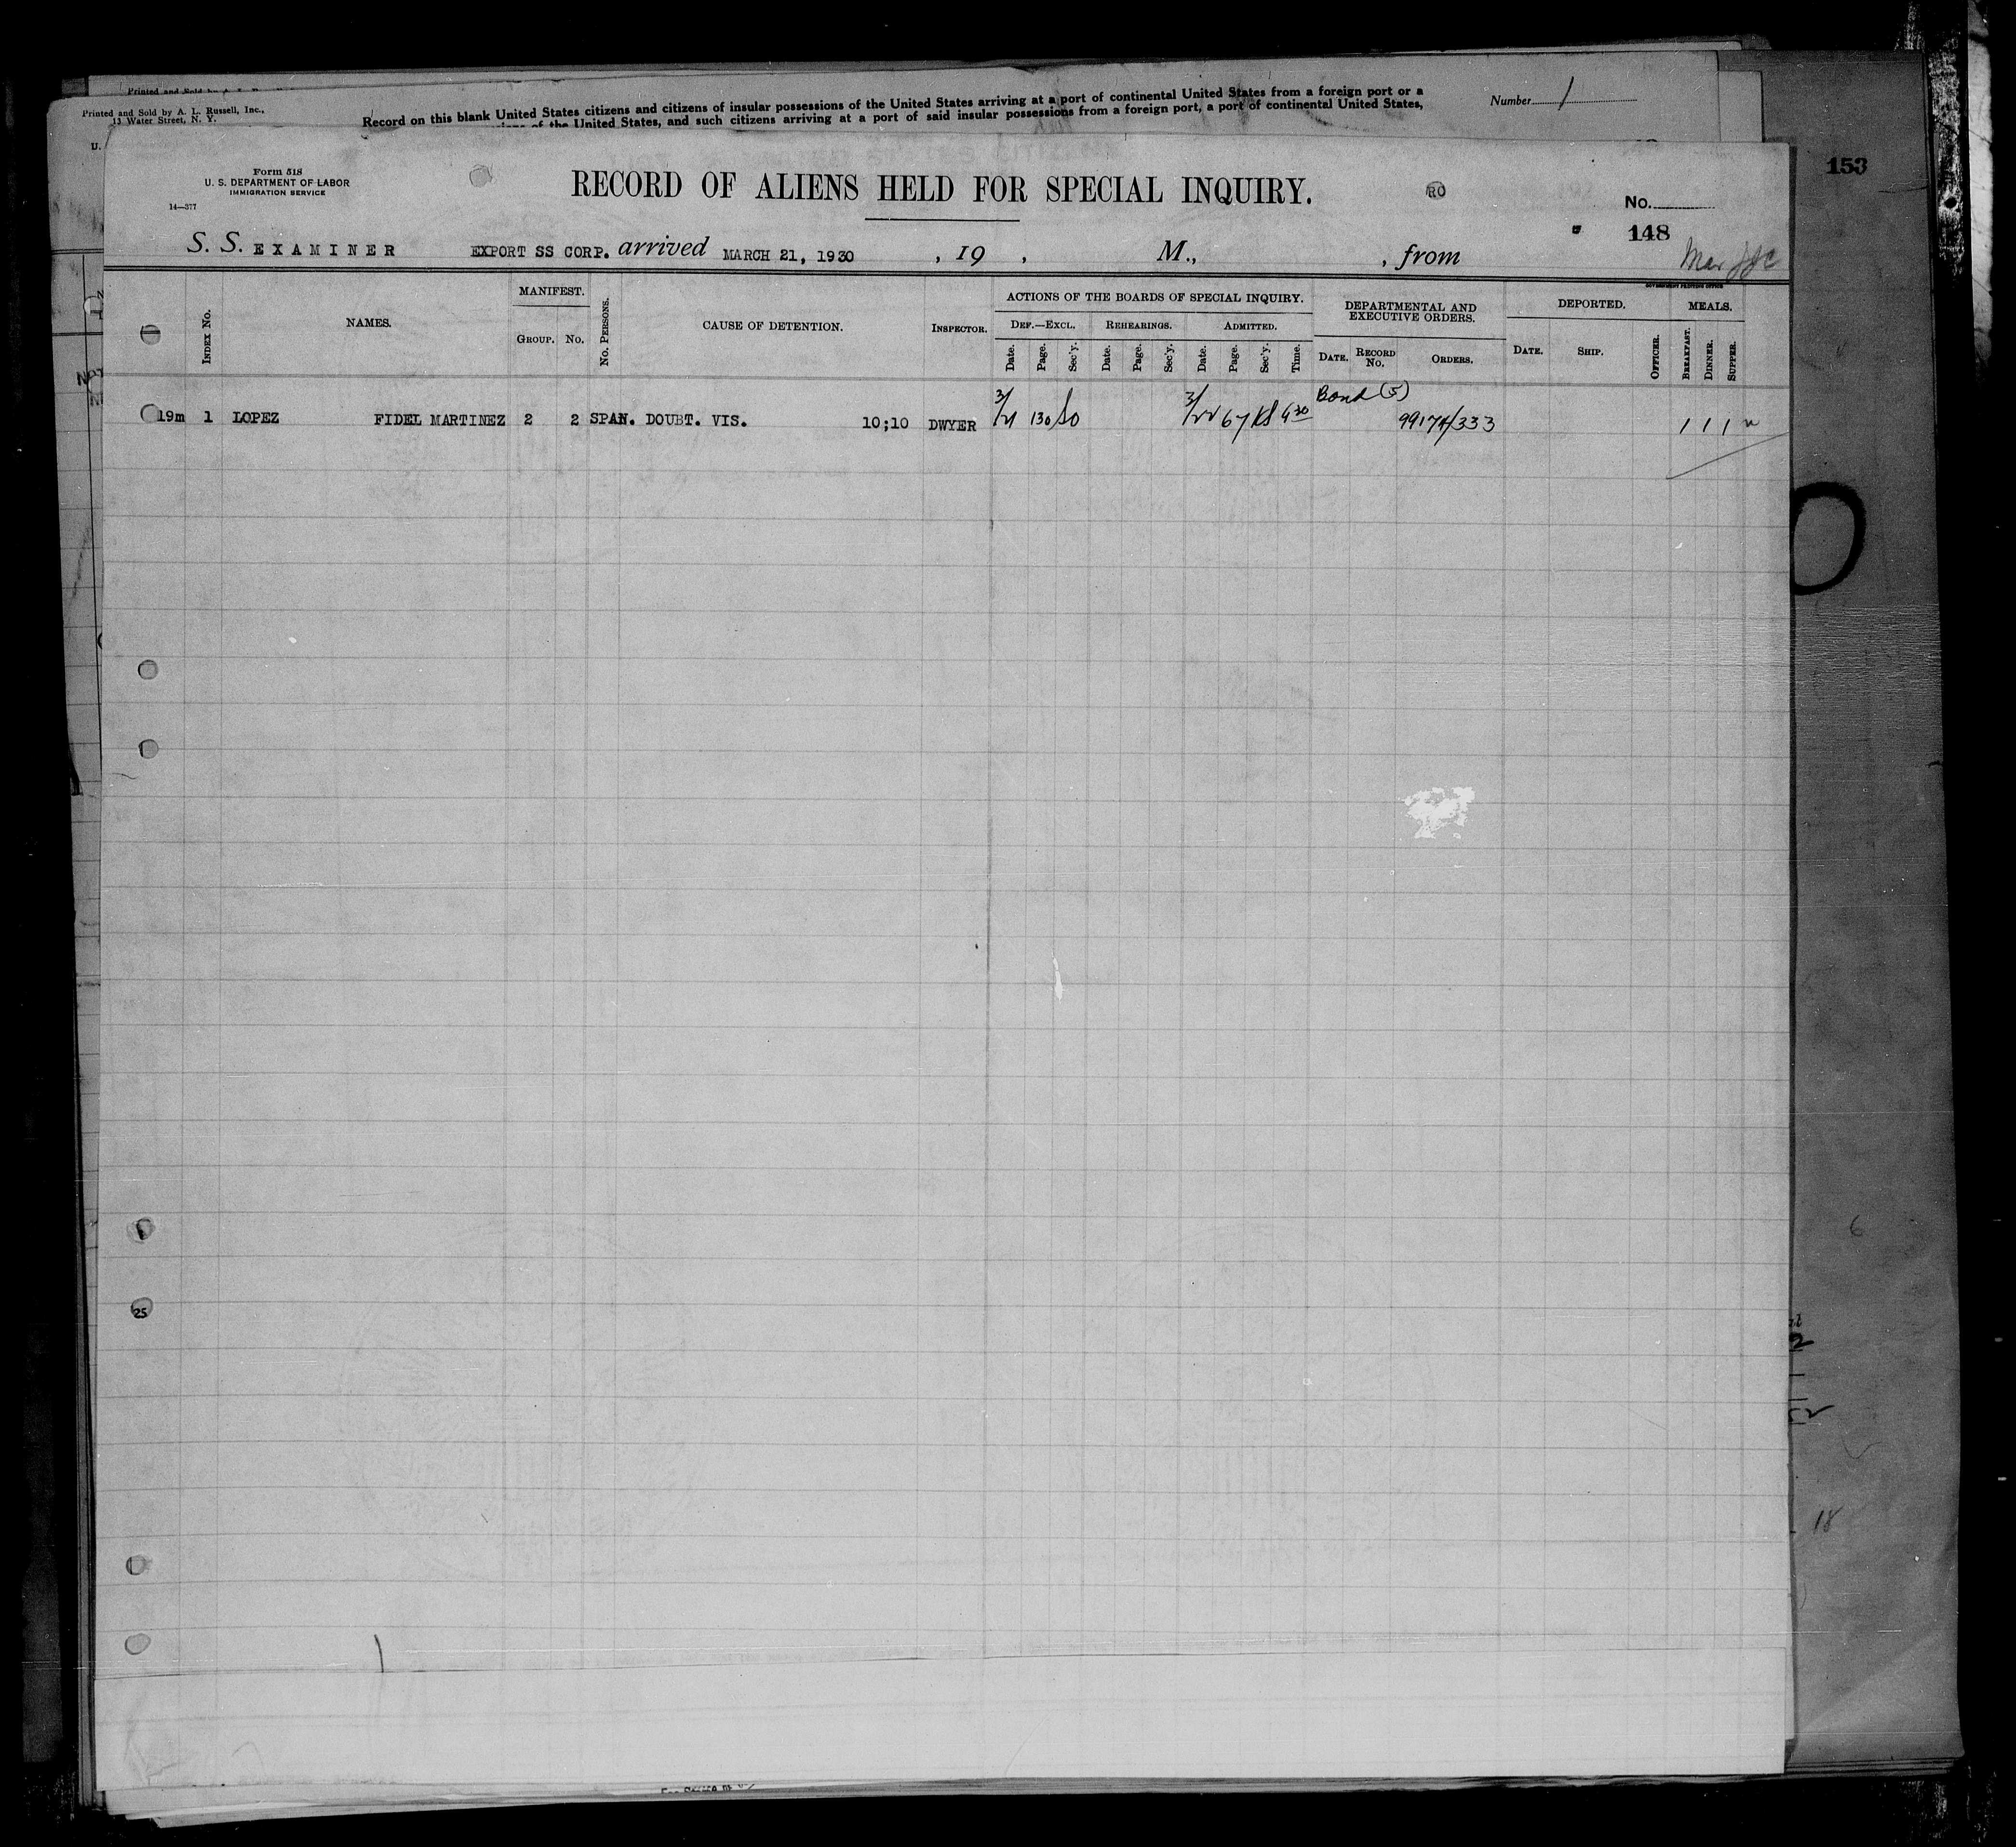 Printed and Sold by A. L. Russell, Inc.,
13 Water Street, N. Y.
Record on this blank United States citizens and citizens of insular possessions of the United States arriving at a port of continental United States from a foreign port or a
of the United States, and such citizens arriving at a port of said insular possessions from a foreign port, a port of continental United States,
Number 1
U.
153
Form 518
U. S. DEPARTMENT OF LABOR
IMMIGRATION SERVICE
14—577
RECORD OF ALIENS HELD FOR SPECIAL INQUIRY.
RO
No.
148
S. S. EXAMINER EXPORT SS CORP. arrived MARCH 21, 1930 , 19 , M., , from
GOVERNMENT PRINTING OFFICE
INDEX No. NAMES. MANIFEST. GROUP. No. No. PERSONS. CAUSE OF DETENTION. INSPECTOR.
ACTIONS OF THE BOARDS OF SPECIAL INQUIRY. DEPARTMENTAL AND EXECUTIVE ORDERS. DEPORTED. MEALS.
DEF.—EXCL. REHEARINGS. ADMITTED.
Date. Page. Sec'y. Date. Page. Sec'y. Date. Page. Sec'y. Time. DATE. RECORD No. ORDERS. DATE. SHIP. OFFICER. BREAKFAST. DINNER. SUPPER.
Bond (5)
19m 1 LOPEZ FIDEL MARTINEZ 2 2 SPAN. DOUBT. VIS. 10;10 DWYER 3/21 130 SO 3/22 67 KS 4 30 99174/333 1 1 1
25
6
18